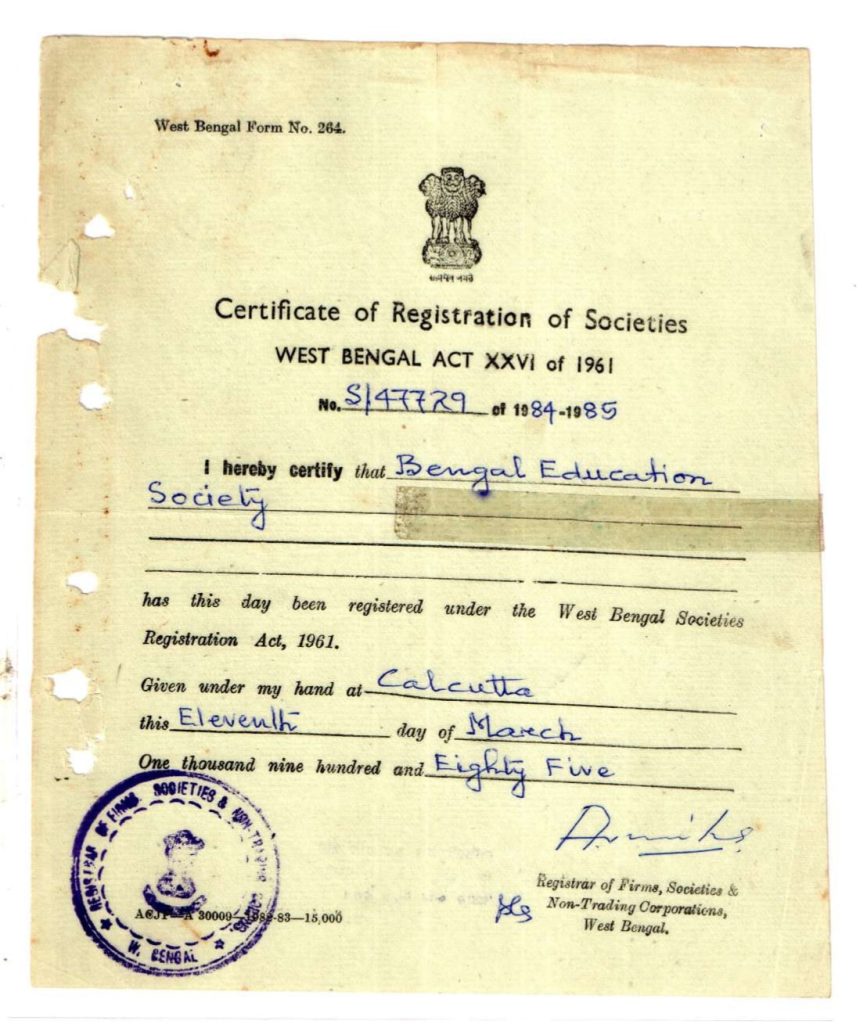 West Bengal Form No. 264.
सत्यमेव जयते
Certificate of Registration of Societies
WEST BENGAL ACT XXVI of 1961
No. S/47729 of 1984-1985
I hereby certify that Bengal Education
Society
has this day been registered under the West Bengal Societies
Registration Act, 1961.
Given under my hand at Calcutta
this Eleventh day of March
One thousand nine hundred and Eighty Five
REGISTRAR OF FIRMS, SOCIETIES & NON-TRADING
W. BENGAL
Registrar of Firms, Societies &
Non-Trading Corporations,
West Bengal.
30009—1982-83—15,000